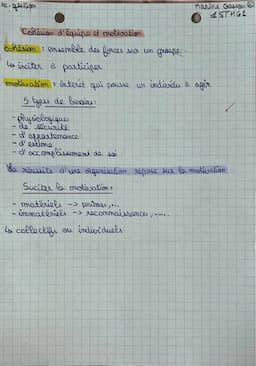 sc. gestion
Marine
1STMG2
Cohésion d'équipe et motivation
Cohésion : ensemble des forces sur un groupe.
↳ inciter à participer
motivation : intérêt qui pousse un individu à agir
5 types de besoins :
- physiologiques
- de sécurité
- d'appartenance
- d'estime
- d'accomplissement de soi
La réussite d'une organisation repose sur la motivation
Suciter la motivation :
- matériels -> primes,...
- immatériels -> reconnaissance,....
↳ collectifs ou individuels